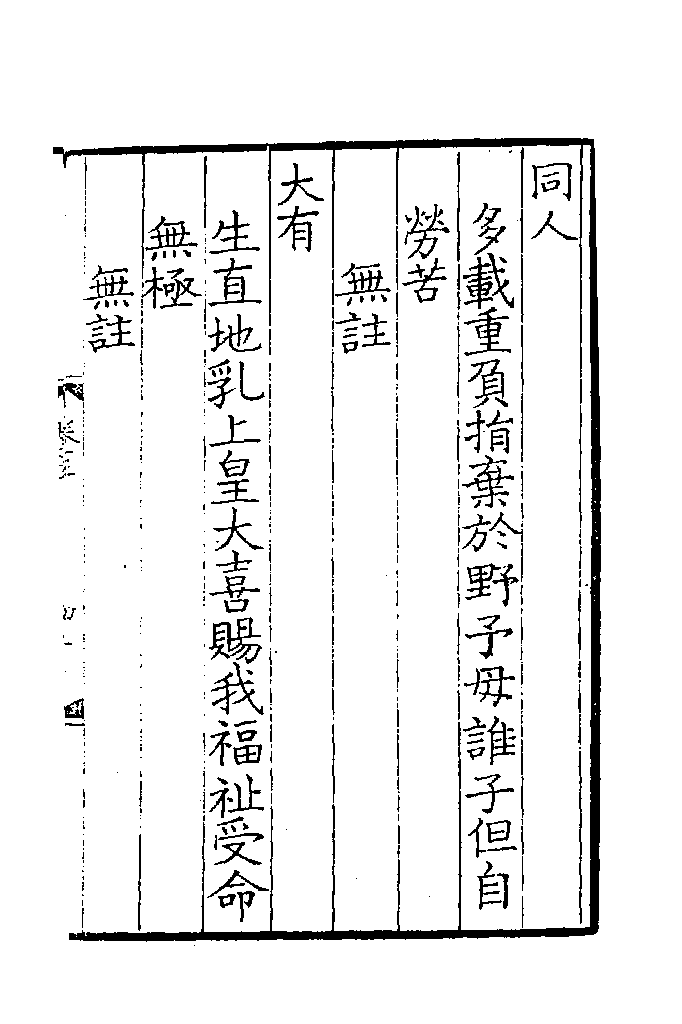 同人
多載重負捐棄於野予母誰子但自
勞苦
無註
大有
生直地乳上皇大喜賜我福祉受命
無極
無註